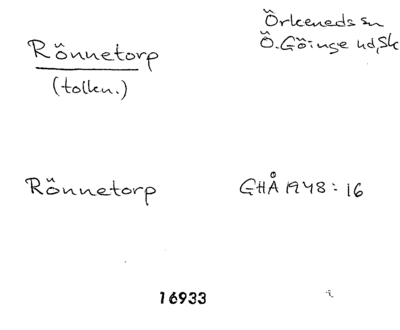 Rönnetorp
(tolkn.)
Örkeneds sn
Ö. Göinge hd, Sk
Rönnetorp
GHÅ 1948:16
16933